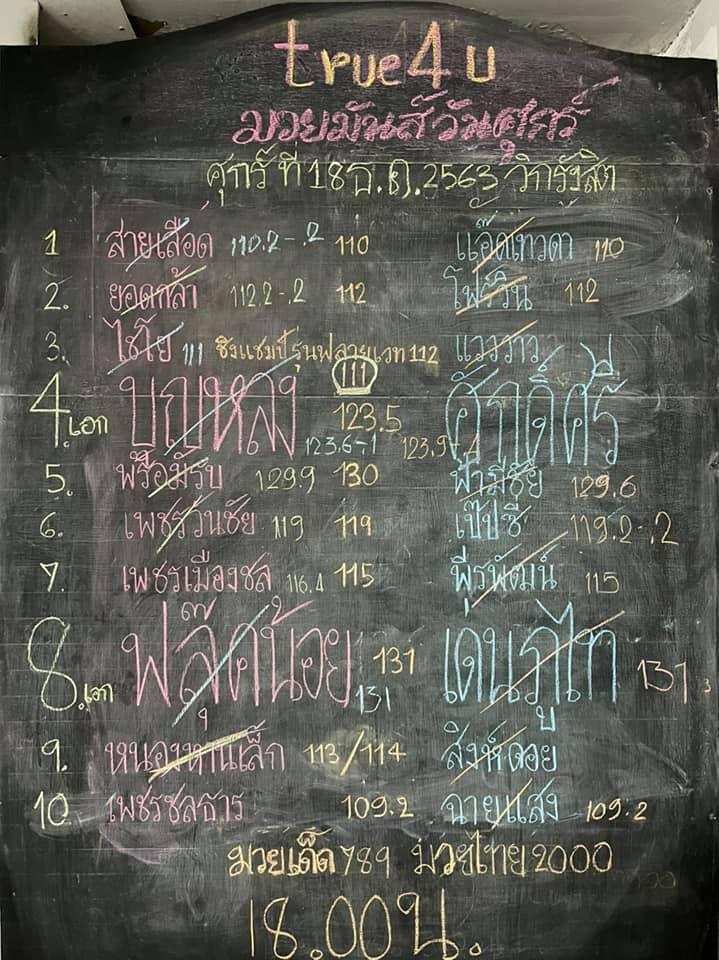 true4u
มวยมันส์วันศุกร์
ศุกร์ที่ 18 ธ.ค. 2563 วิกรังสิต
1 สายเลือด 110.2-.2 110 แอ๊ดเทวดา 110
2. ยอดกล้า 112.2-.2 112 โฟร์วิน 112
3. ไชโย 111 ชิงแชมป์รุ่นฟลายเวท 112 แวววาว
111
4.เอก บุญหลง 123.5 ศักดิ์ศรี
123.6-.1 123.9-.4
5. พร้อมรบ 129.9 130 ฟ้ามีชัย 129.6
6. เพชรวันชัย 119 119 เป๊ปซี่ 119.2-.2
7. เพชรเมืองชล 116.4 115 พีรพัฒน์ 115
8.เอก ฟลุ๊คน้อย 131 เดนภูไท 131
131
9. หนองหานเล็ก 113/114 สิงห์ดอย
10. เพชรชลธาร 109.2 ฉายแสง 109.2
มวยเด็ด789 มวยไทย2000
18.00น.